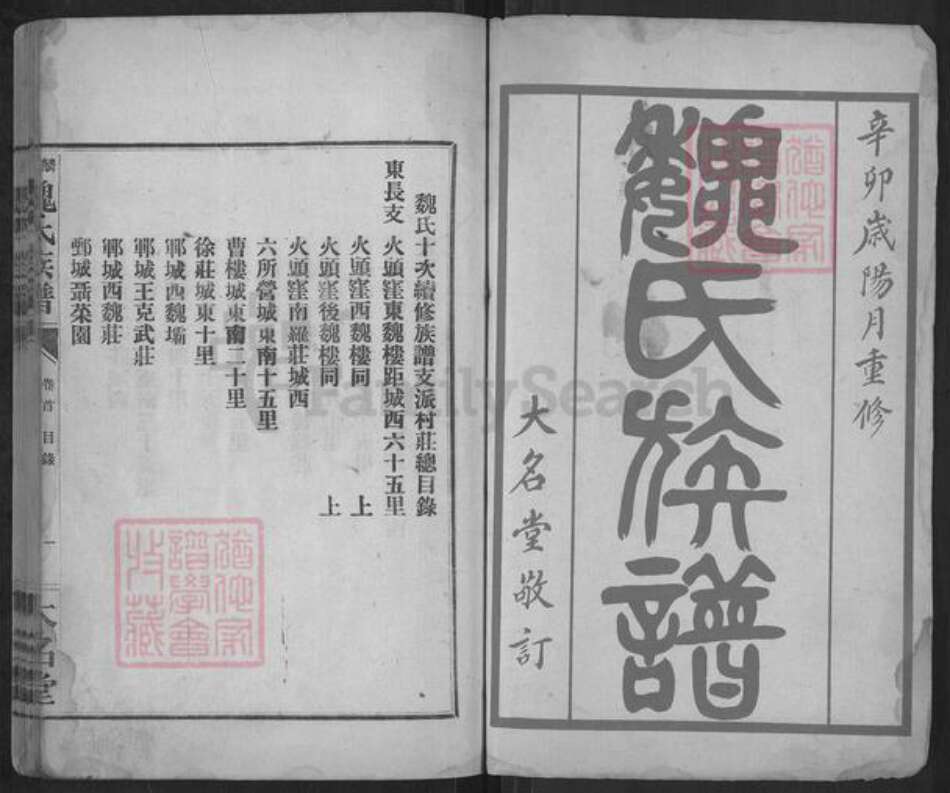 辛卯歲陽月重修
魏氏族譜
大名堂敬訂
魏氏十次續修族譜支派村莊總目錄
東長支 火頭窪東魏樓距城西六十五里
火頭窪西魏樓同上
火頭窪後魏樓同上
火頭窪南羅莊城西
六所營城東南十五里
曹樓城東南二十里
徐莊城東十里
鄆城西魏壩
鄆城王克武莊
鄆城西魏莊
鄄城聒菜園
魏氏族譜 卷首 目錄 一 大名堂
FamilySearch